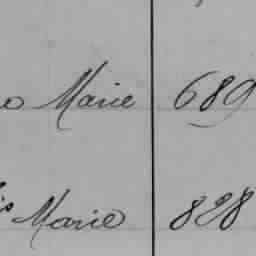 Marie 689
Marie 828